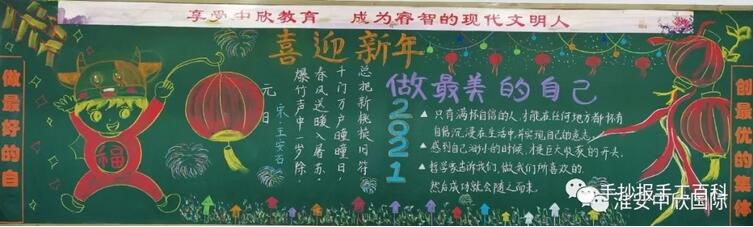 享受中欣教育 成为睿智的现代文明人
做最好的自
喜迎新年
福
元日
宋 王安石
爆竹声中一岁除,
春风送暖入屠苏。
千门万户曈曈日,
总把新桃换旧符
2021
做最美的自己
▲ 只有满怀自信的人,才能在任何地方都怀有
自信,沉浸在生活中,并实现自己的意志。
▲ 感到自己渺小的时候,才是巨大收获的开头。
▲ 哲学家告诉我们,做我们所喜欢的,
然后成功就会随之而来。
创最优的集体
手抄报手工百科
淮安中欣国际